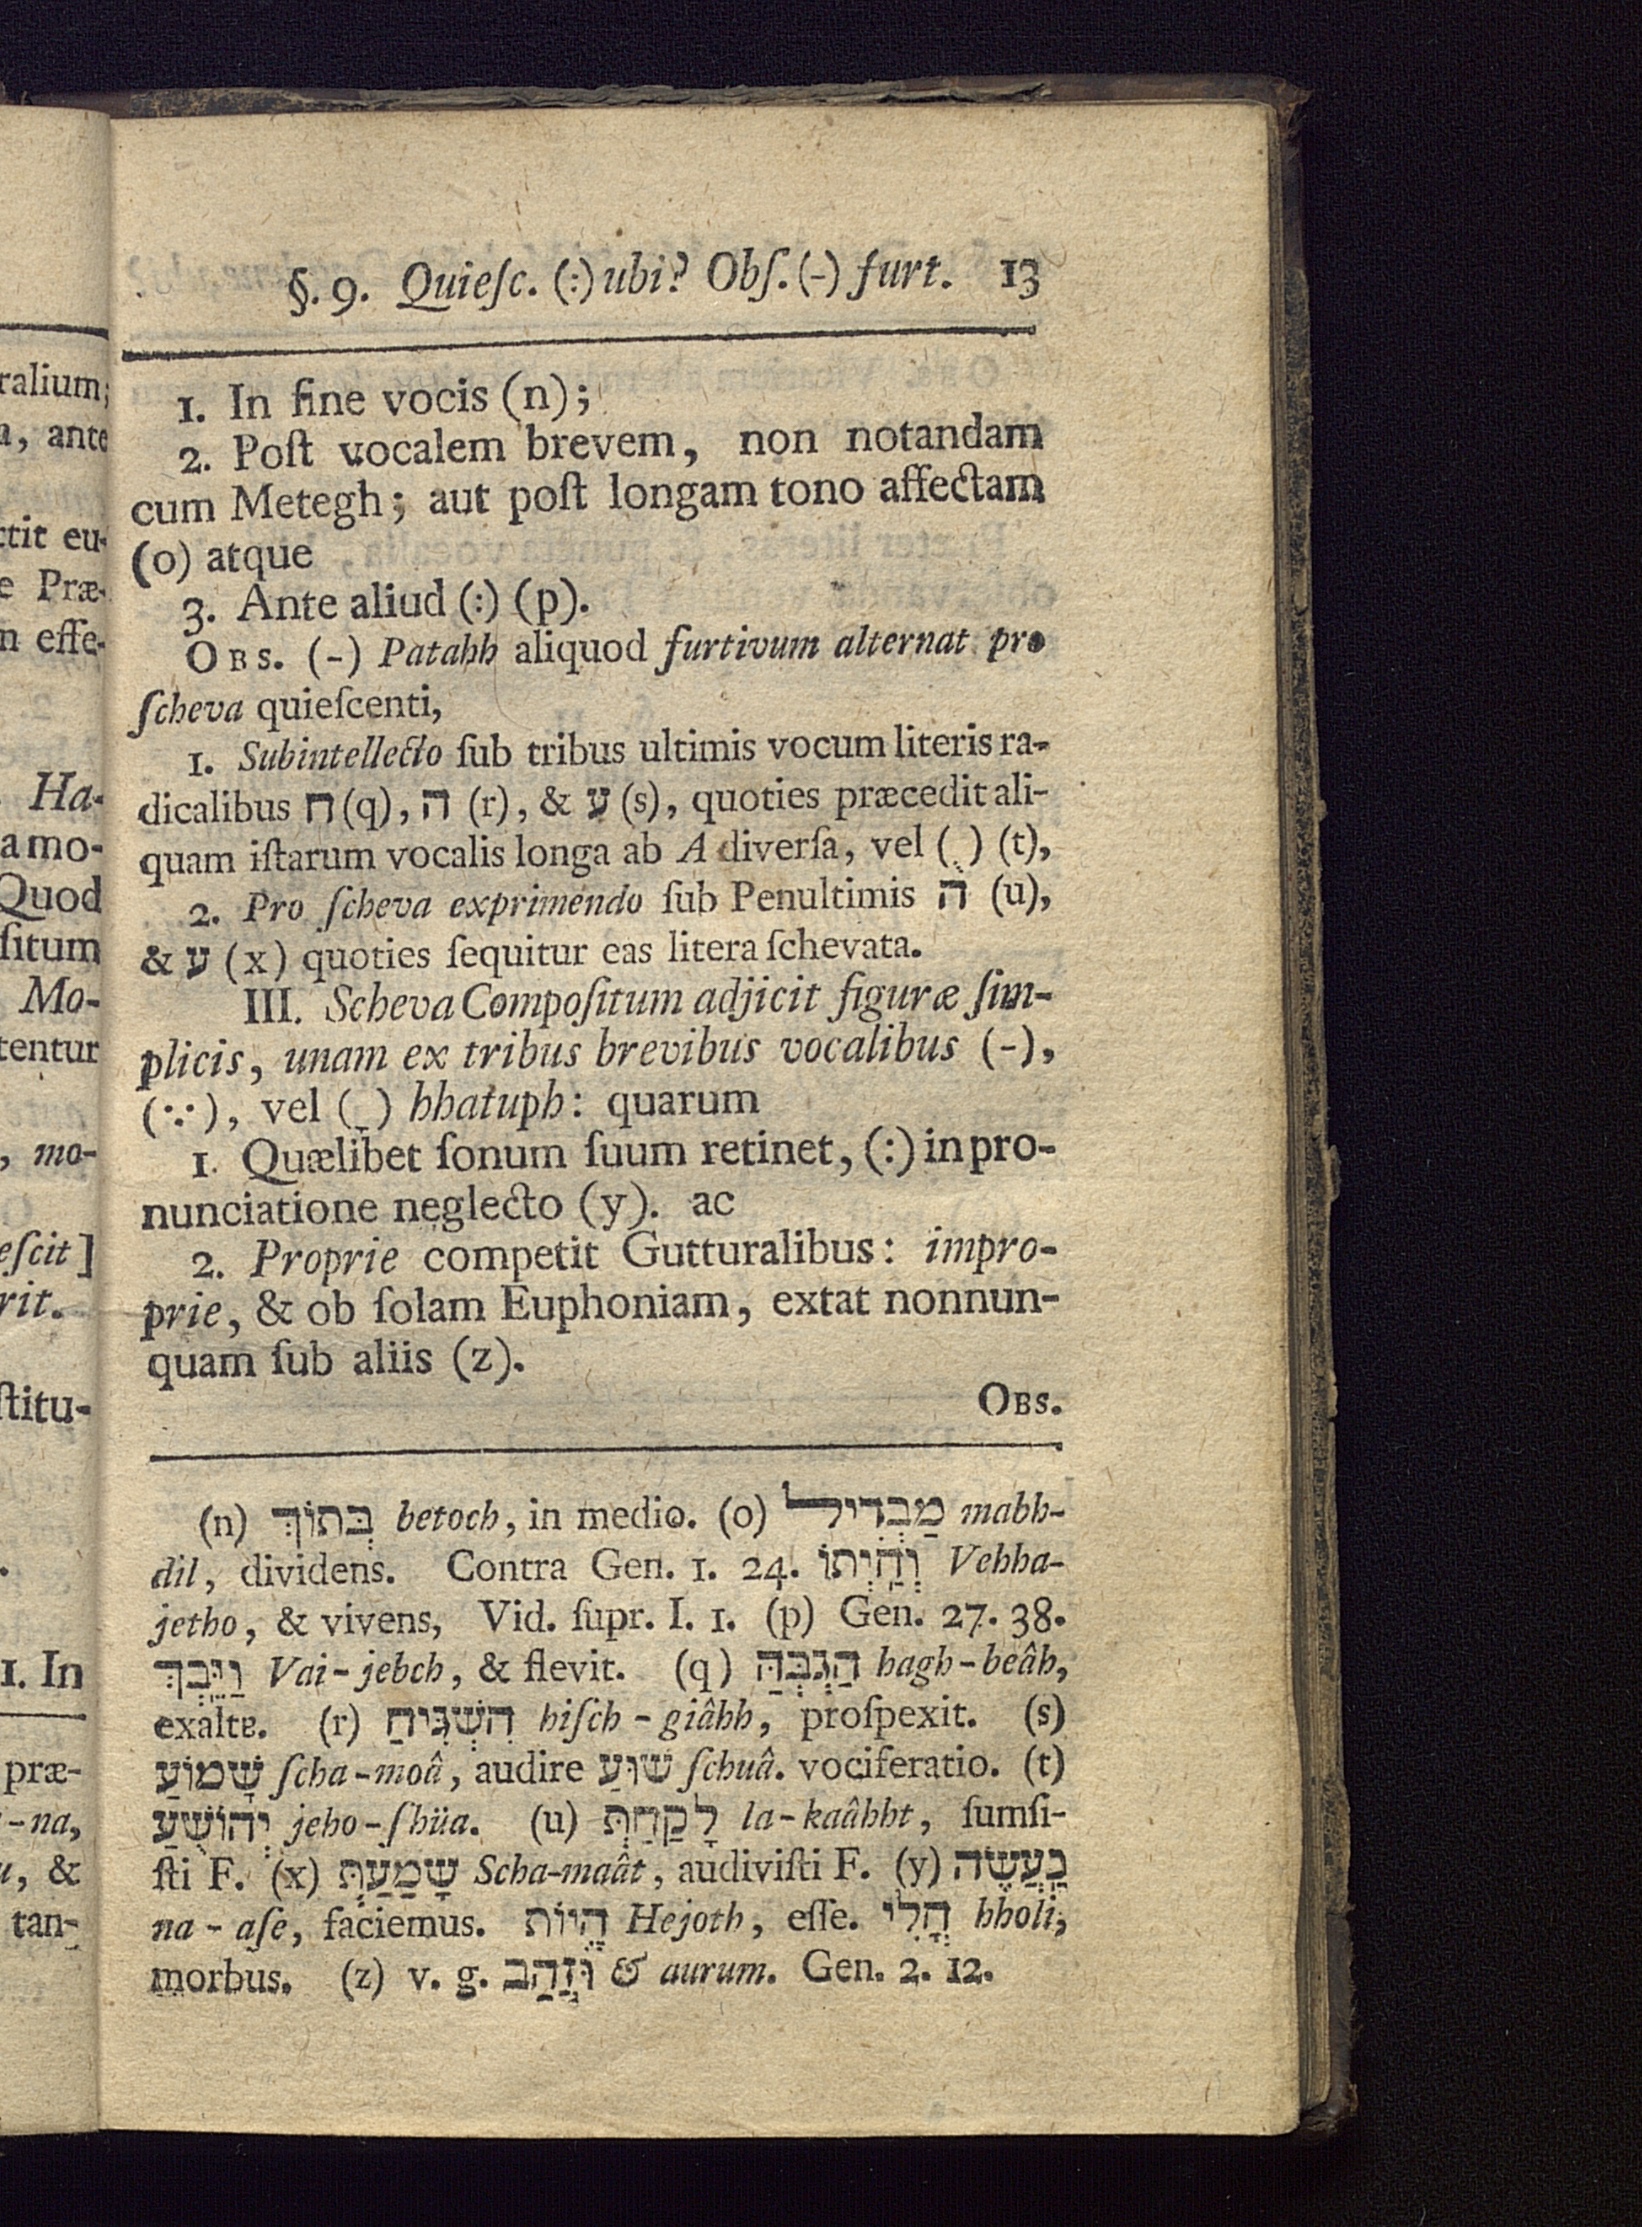 §. 9. Quieſc. (:) ubi? Obſ. (-) furt. 13
1. In fine vocis (n);
2. Poſt vocalem brevem, non notandam
cum Metegh; aut poſt longam tono affectam
(o) atque
3. Ante aliud (:) (p).
OBS. (-) Patahh aliquod furtivum alternat pro
ſcheva quieſcenti,
1. Subintellecto ſub tribus ultimis vocum literis ra-
dicalibus ח (q), ה (r), & ע (s), quoties præcedit ali-
quam iſtarum vocalis longa ab A diverſa, vel (ֻ) (t),
2. Pro ſcheva exprimendo ſub Penultimis ה (u),
& ע (x) quoties ſequitur eas litera ſchevata.
III. Scheva Compoſitum adjicit figuræ ſim-
plicis, unam ex tribus brevibus vocalibus (-),
(ֶ), vel (ָ) hhatuph: quarum
1. Quælibet ſonum ſuum retinet, (:) in pro-
nunciatione neglecto (y). ac
2. Proprie competit Gutturalibus: impro-
prie, & ob ſolam Euphoniam, extat nonnun-
quam ſub aliis (z).
OBS.
(n) בְּתוֹךְ betoch, in medio. (o) מַבְדִיל mabh-
dil, dividens. Contra Gen. 1. 24. וְחַֽיְתוֹ Vehha-
jetho, & vivens, Vid. ſupr. I. 1. (p) Gen. 27. 38.
וַיֵּבְךְּ Vai-jebch, & flevit. (q) הַגְבְּהַּ hagh-beâh,
exalte. (r) הִשְׁגִּיחַ hiſch-giâhh, proſpexit. (s)
שָׁמוֹעַ ſcha-moâ, audire שׁוּעַ ſchuâ. vociferatio. (t)
יְהוֹשֻׁעַ jeho-ſhüa. (u) לָקַחַתְּ la-kaâhht, ſumſi-
ſti F. (x) שָׁמַעַתְּ Scha-maât, audiviſti F. (y) נַעֲשֶׂה
na-aſe, faciemus. הֱיוֹת Hejoth, eſſe. חֳלִי hholi,
morbus. (z) v. g. וּזֲהַב & aurum. Gen. 2. 12.
ralium;
, ante
tit eu-
e Præ-
n effe-
Ha-
a mo-
Quod
ſitum
Mo-
tentur
, mo-
eſcit]
rit.
ſtitu-
1. In
præ-
-na,
, &
tan-